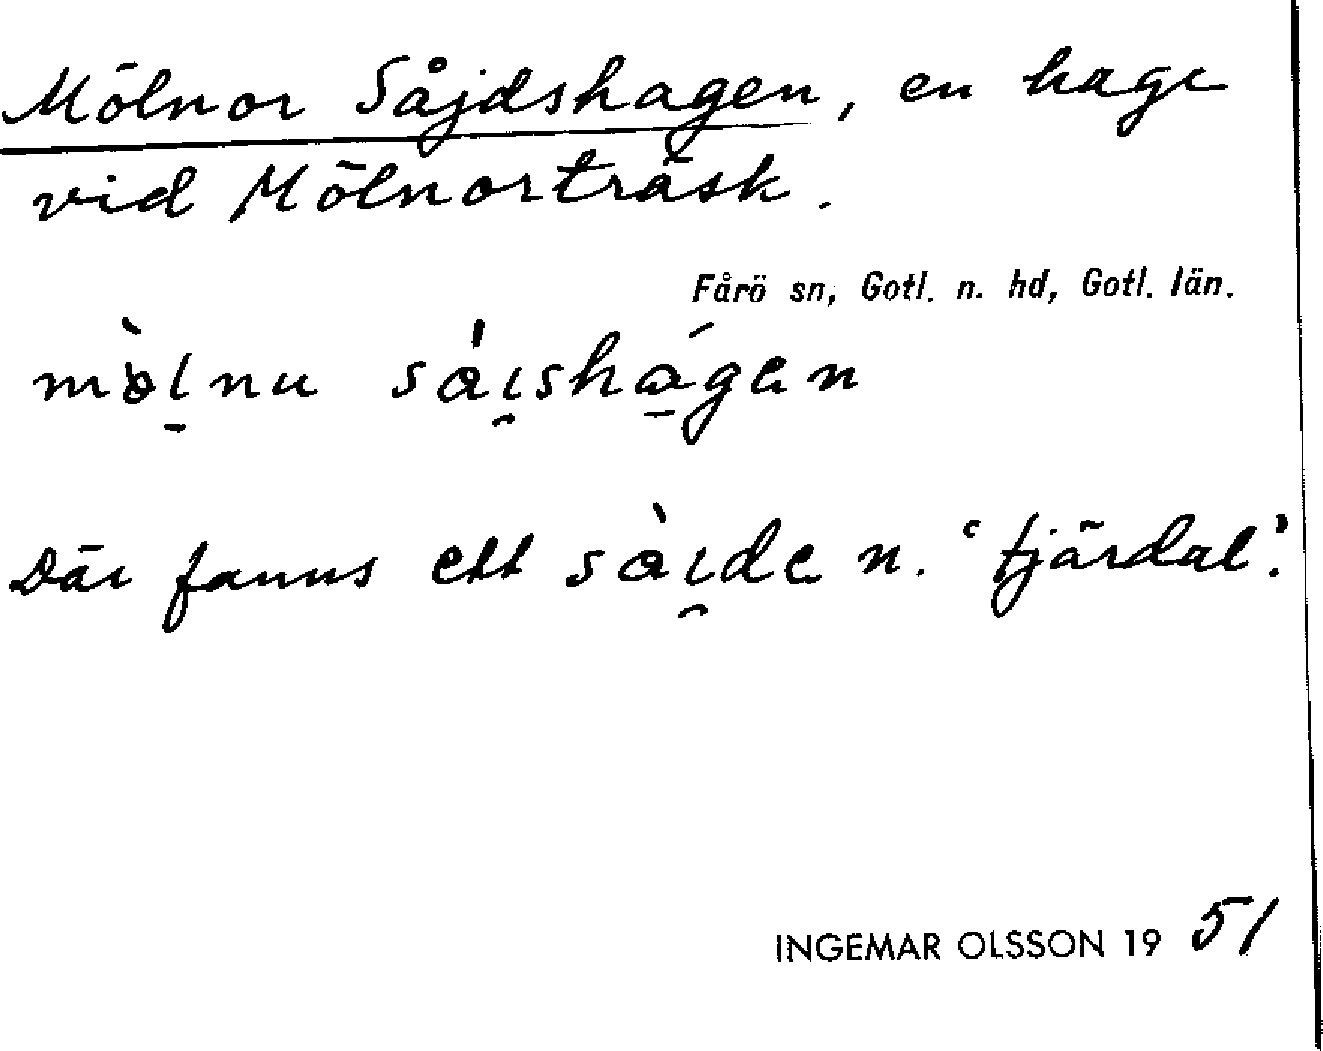 Mölnor Såjdshagen, en hage
vid Mölnorträsk.
Fårö sn, Gotl. n. hd, Gotl. län.
Där fanns ett n. 'tjärdal'.
INGEMAR OLSSON 19 51